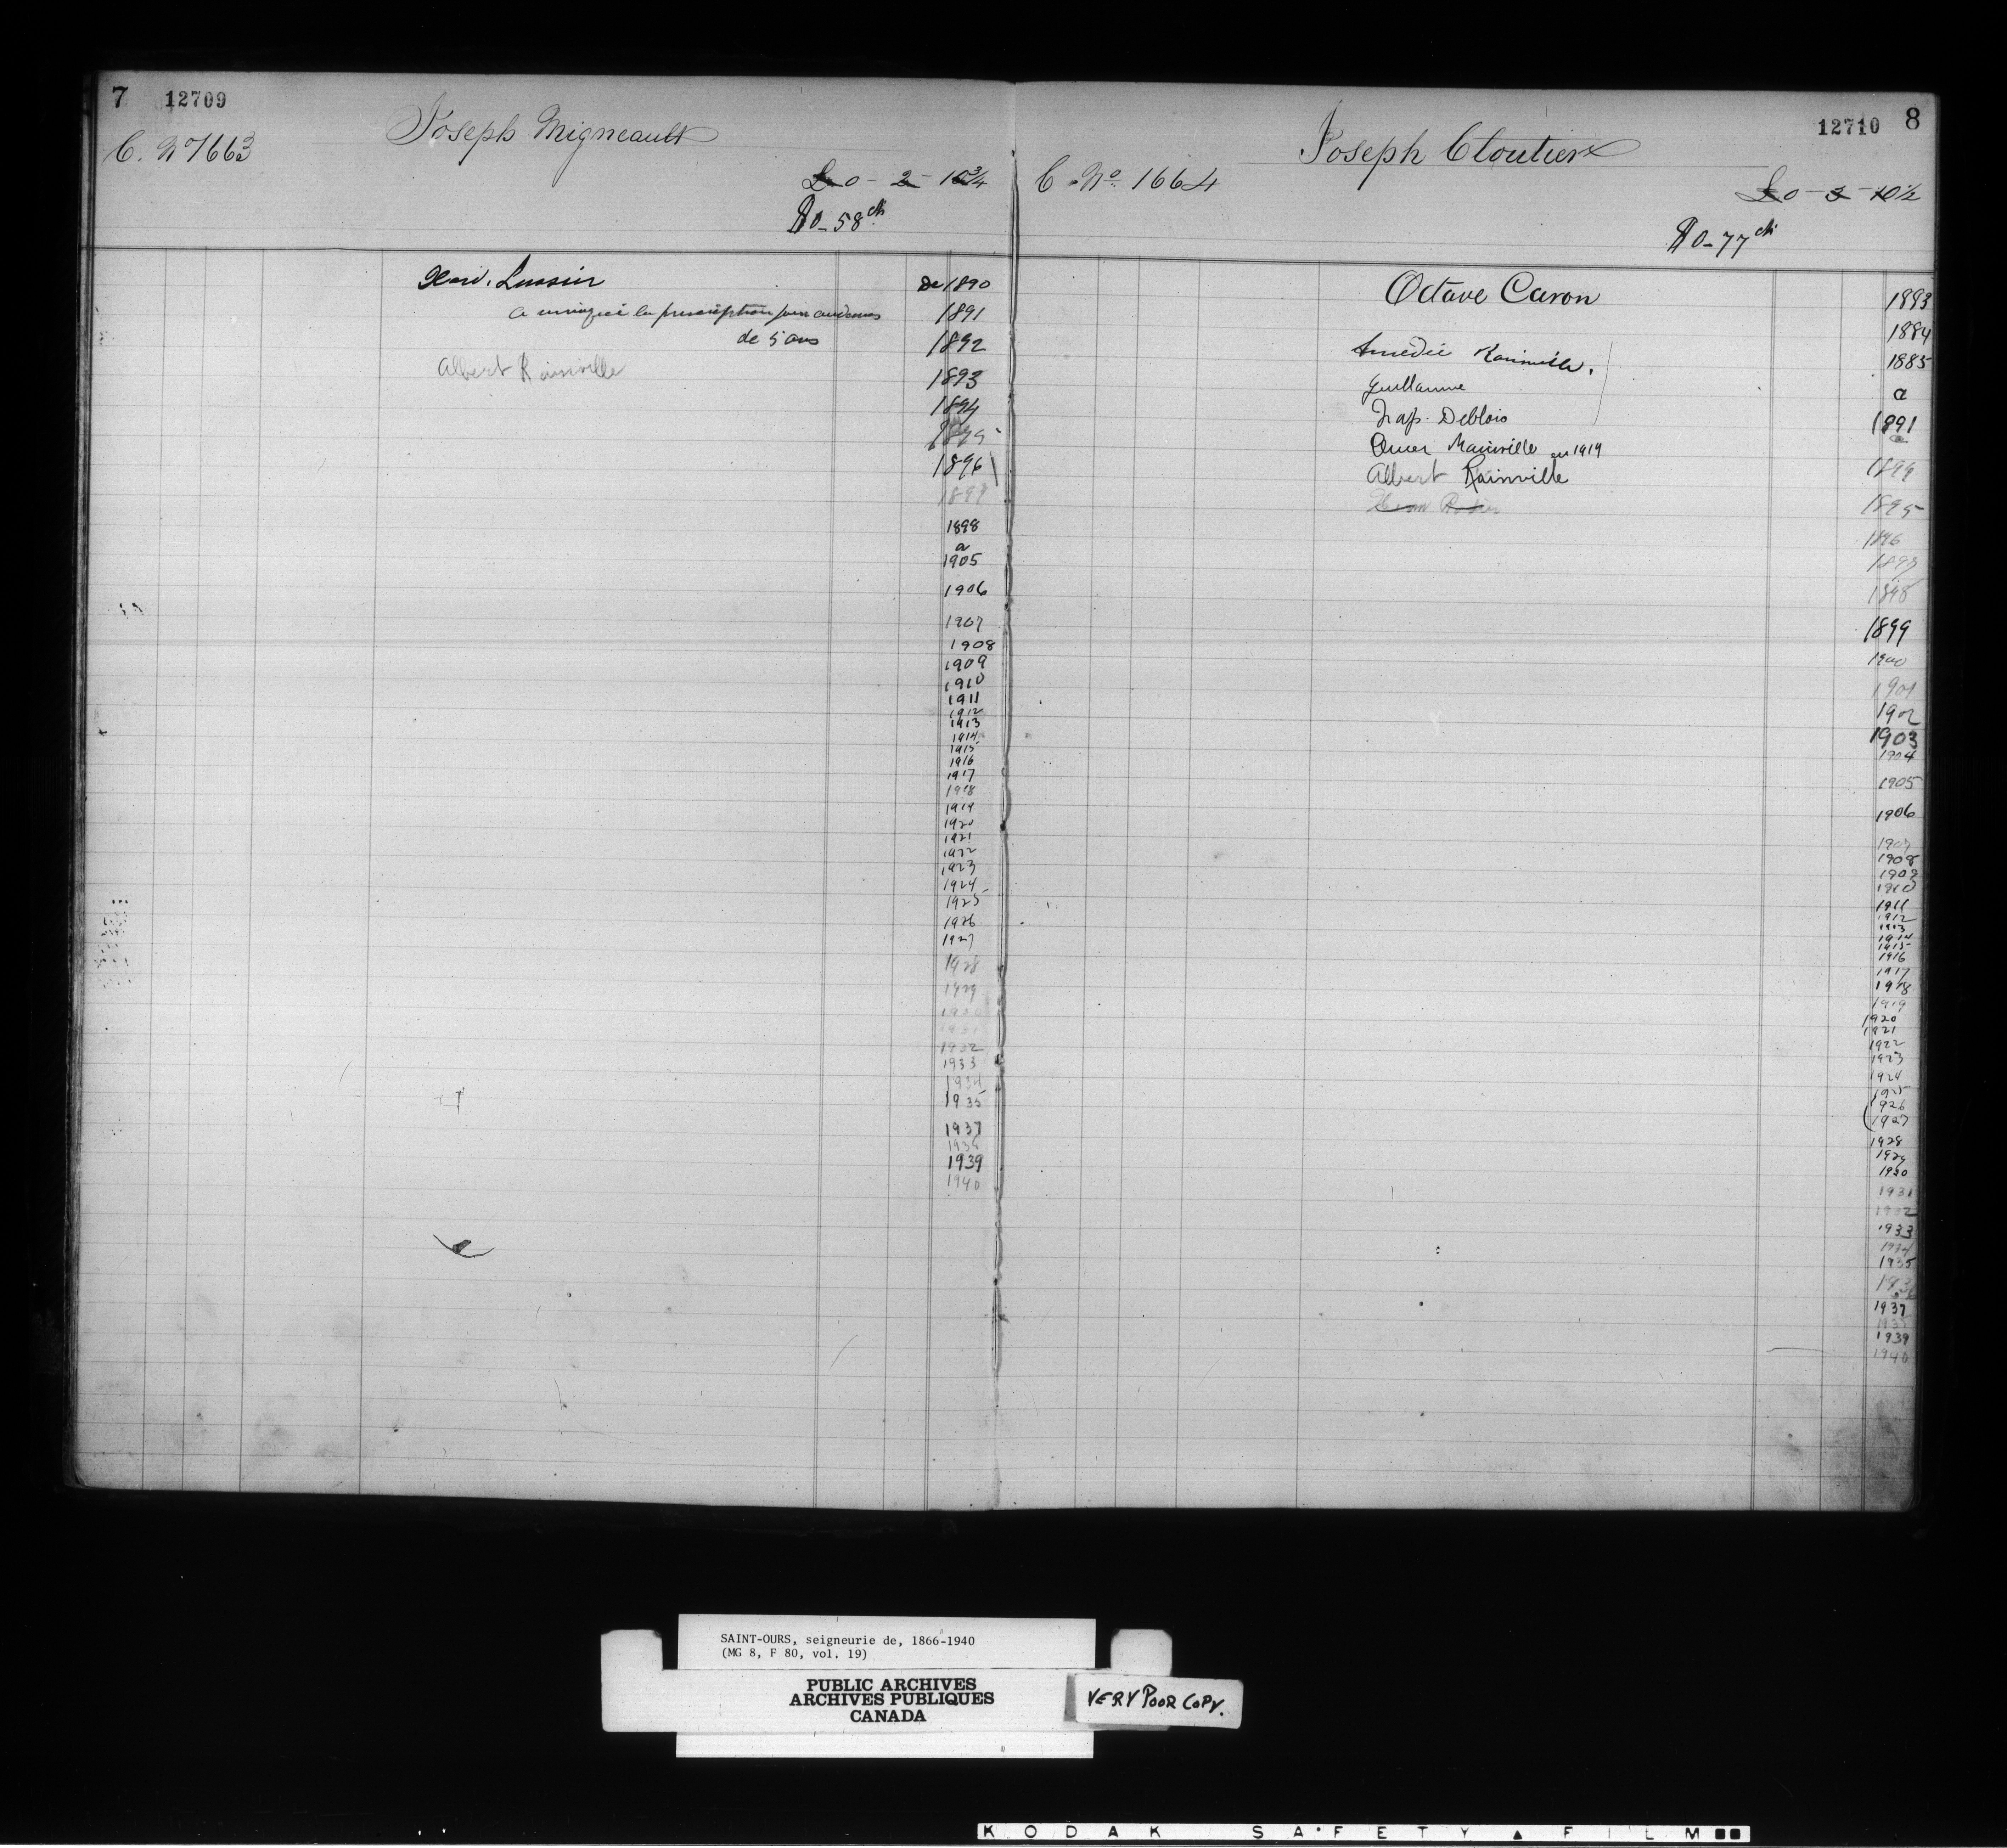 7 12709
Joseph Migneault
C. No 1663
£0 - 2 - 10 3/4
$0-58 cts
de 1890
a invoqué la prescription pour au dessus
1891
de 5 ans
1892
Albert Rainville
1893
1894
1895
1896
1897
1898
a
1905
1906
1907
1908
1909
1910
1911
1912
1913
1914
1915
1916
1917
1918
1919
1920
1921
1922
1923
1924
1925
1926
1927
1928
1929
1930
1931
1932
1933
1934
1935
1937
1938
1939
1940
12710 8
Joseph Cloutier
C. No. 1664
£0 - 3 - 10 1/2
$0-77 cts
Octave Caron
1893
1884
Amédée Rainville,
1885
Guillaume
a
Nap. Deblois
1891
a
Omer Mainville en 1919
Albert Rainville
1894
1895
1896
1897
1898
1899
1900
1901
1902
1903
1904
1905
1906
1907
1908
1909
1910
1911
1912
1913
1914
1915
1916
1917
1918
1919
1920
1921
1922
1923
1924
1925
1926
1927
1928
1929
1930
1931
1932
1933
1934
1935
1936
1937
1938
1939
1940
SAINT-OURS, seigneurie de, 1866-1940
(MG 8, F 80, vol. 19)
PUBLIC ARCHIVES
ARCHIVES PUBLIQUES
CANADA
VERY POOR COPY.
KODAK SAFETY ▲ FILM